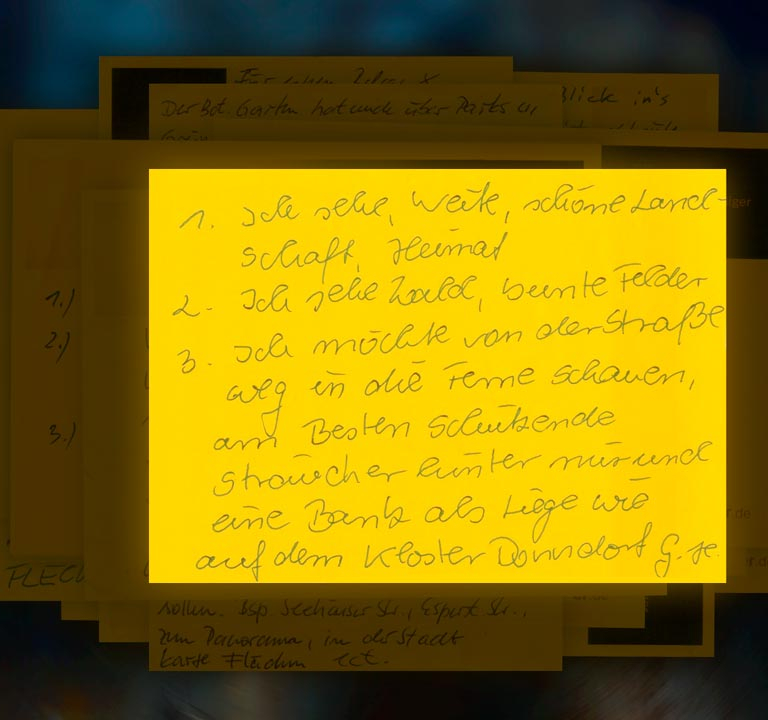 Der Bot. Garten hat auch über Parks in
Blick in's
1. Ich sehe, Weite, schöne Land-
schaft, Heimat
2. Ich sehe Wald, bunte Felder
3. Ich möchte von der Straße
weg in die Ferne schauen,
am Besten schützende
Sträucher hinter mir und
eine Bank als Liege wie
auf dem Kloster Donndorf
1.)
2.)
3.)
FLECK
sollen. Bsp. Str.,
zum Panorama, in der Stadt
Karte Flächen ect.